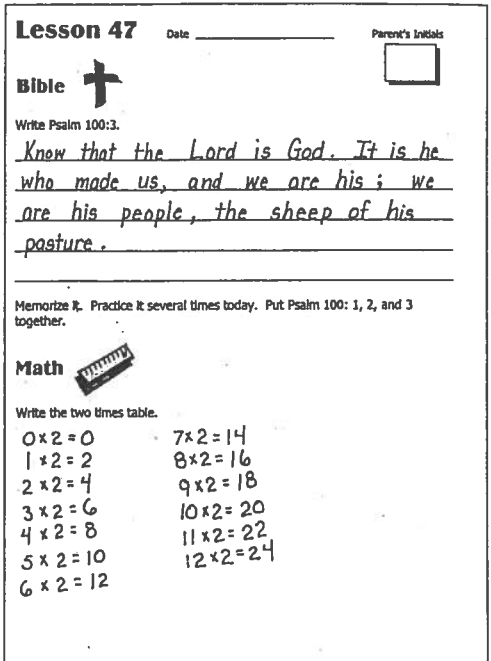 Lesson 47
Date
Parent's Initials
Bible
Write Psalm 100:3.
Know that the Lord is God. It is he
who made us, and we are his; we
are his people, the sheep of his
pasture.
Memorize it. Practice it several times today. Put Psalm 100: 1, 2, and 3
together.
Math
Write the two times table.
0x2=0
1x2=2
2x2=4
3x2=6
4x2=8
5x2=10
6x2=12
7x2=14
8x2=16
9x2=18
10x2=20
11x2=22
12x2=24